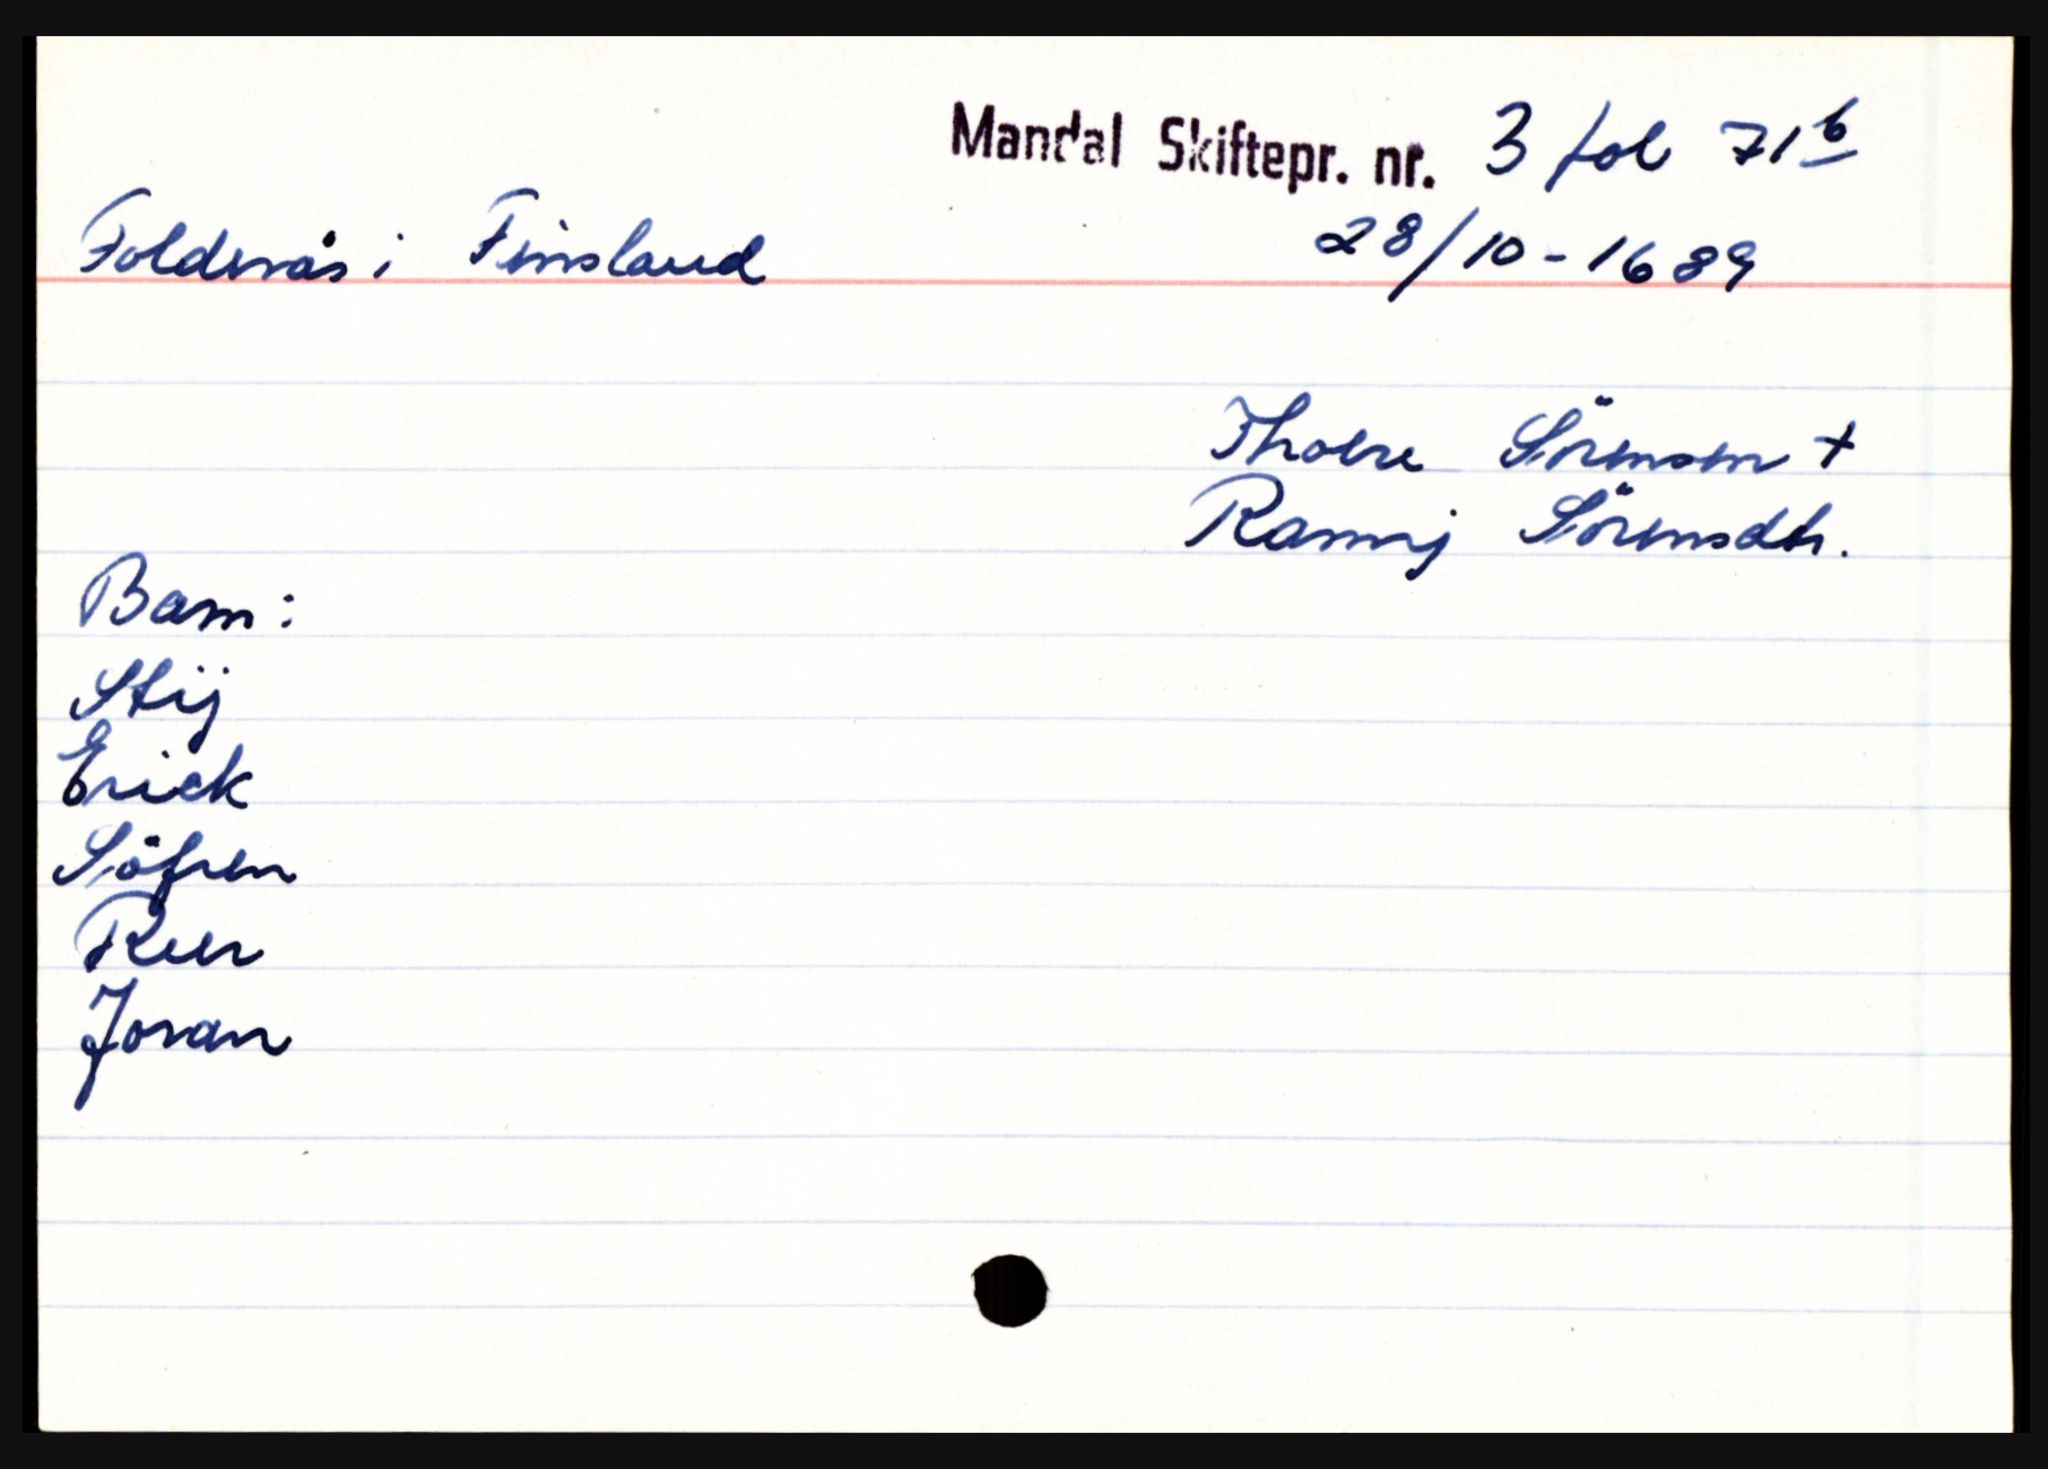 Mandal Skiftepr. nr. 3 fol 71 b
Foldenås i Finsland 28/10-1689
Thore Sörensen +
Rannj Sörensdtr.
Barn:
Stij
Erick
Söfren
Reer
Joran